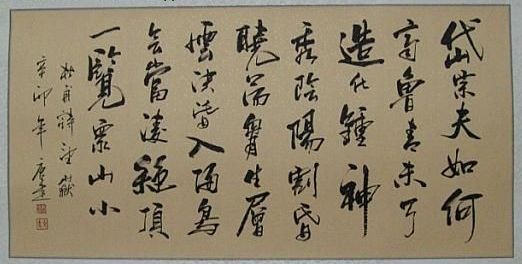 岱宗夫如何
齊魯青未了
造化鍾神
秀陰陽割昏
曉盪胸生層
雲決眥入歸鳥
會當凌絕頂
一覽眾山小
杜甫詩望嶽
辛卯年